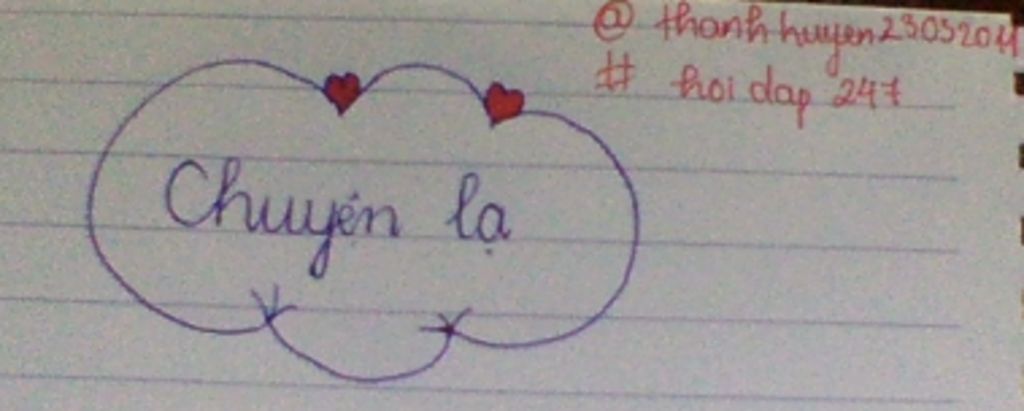 @ thanhhuyen23052011
# hoidap 247
Chuyện lạ